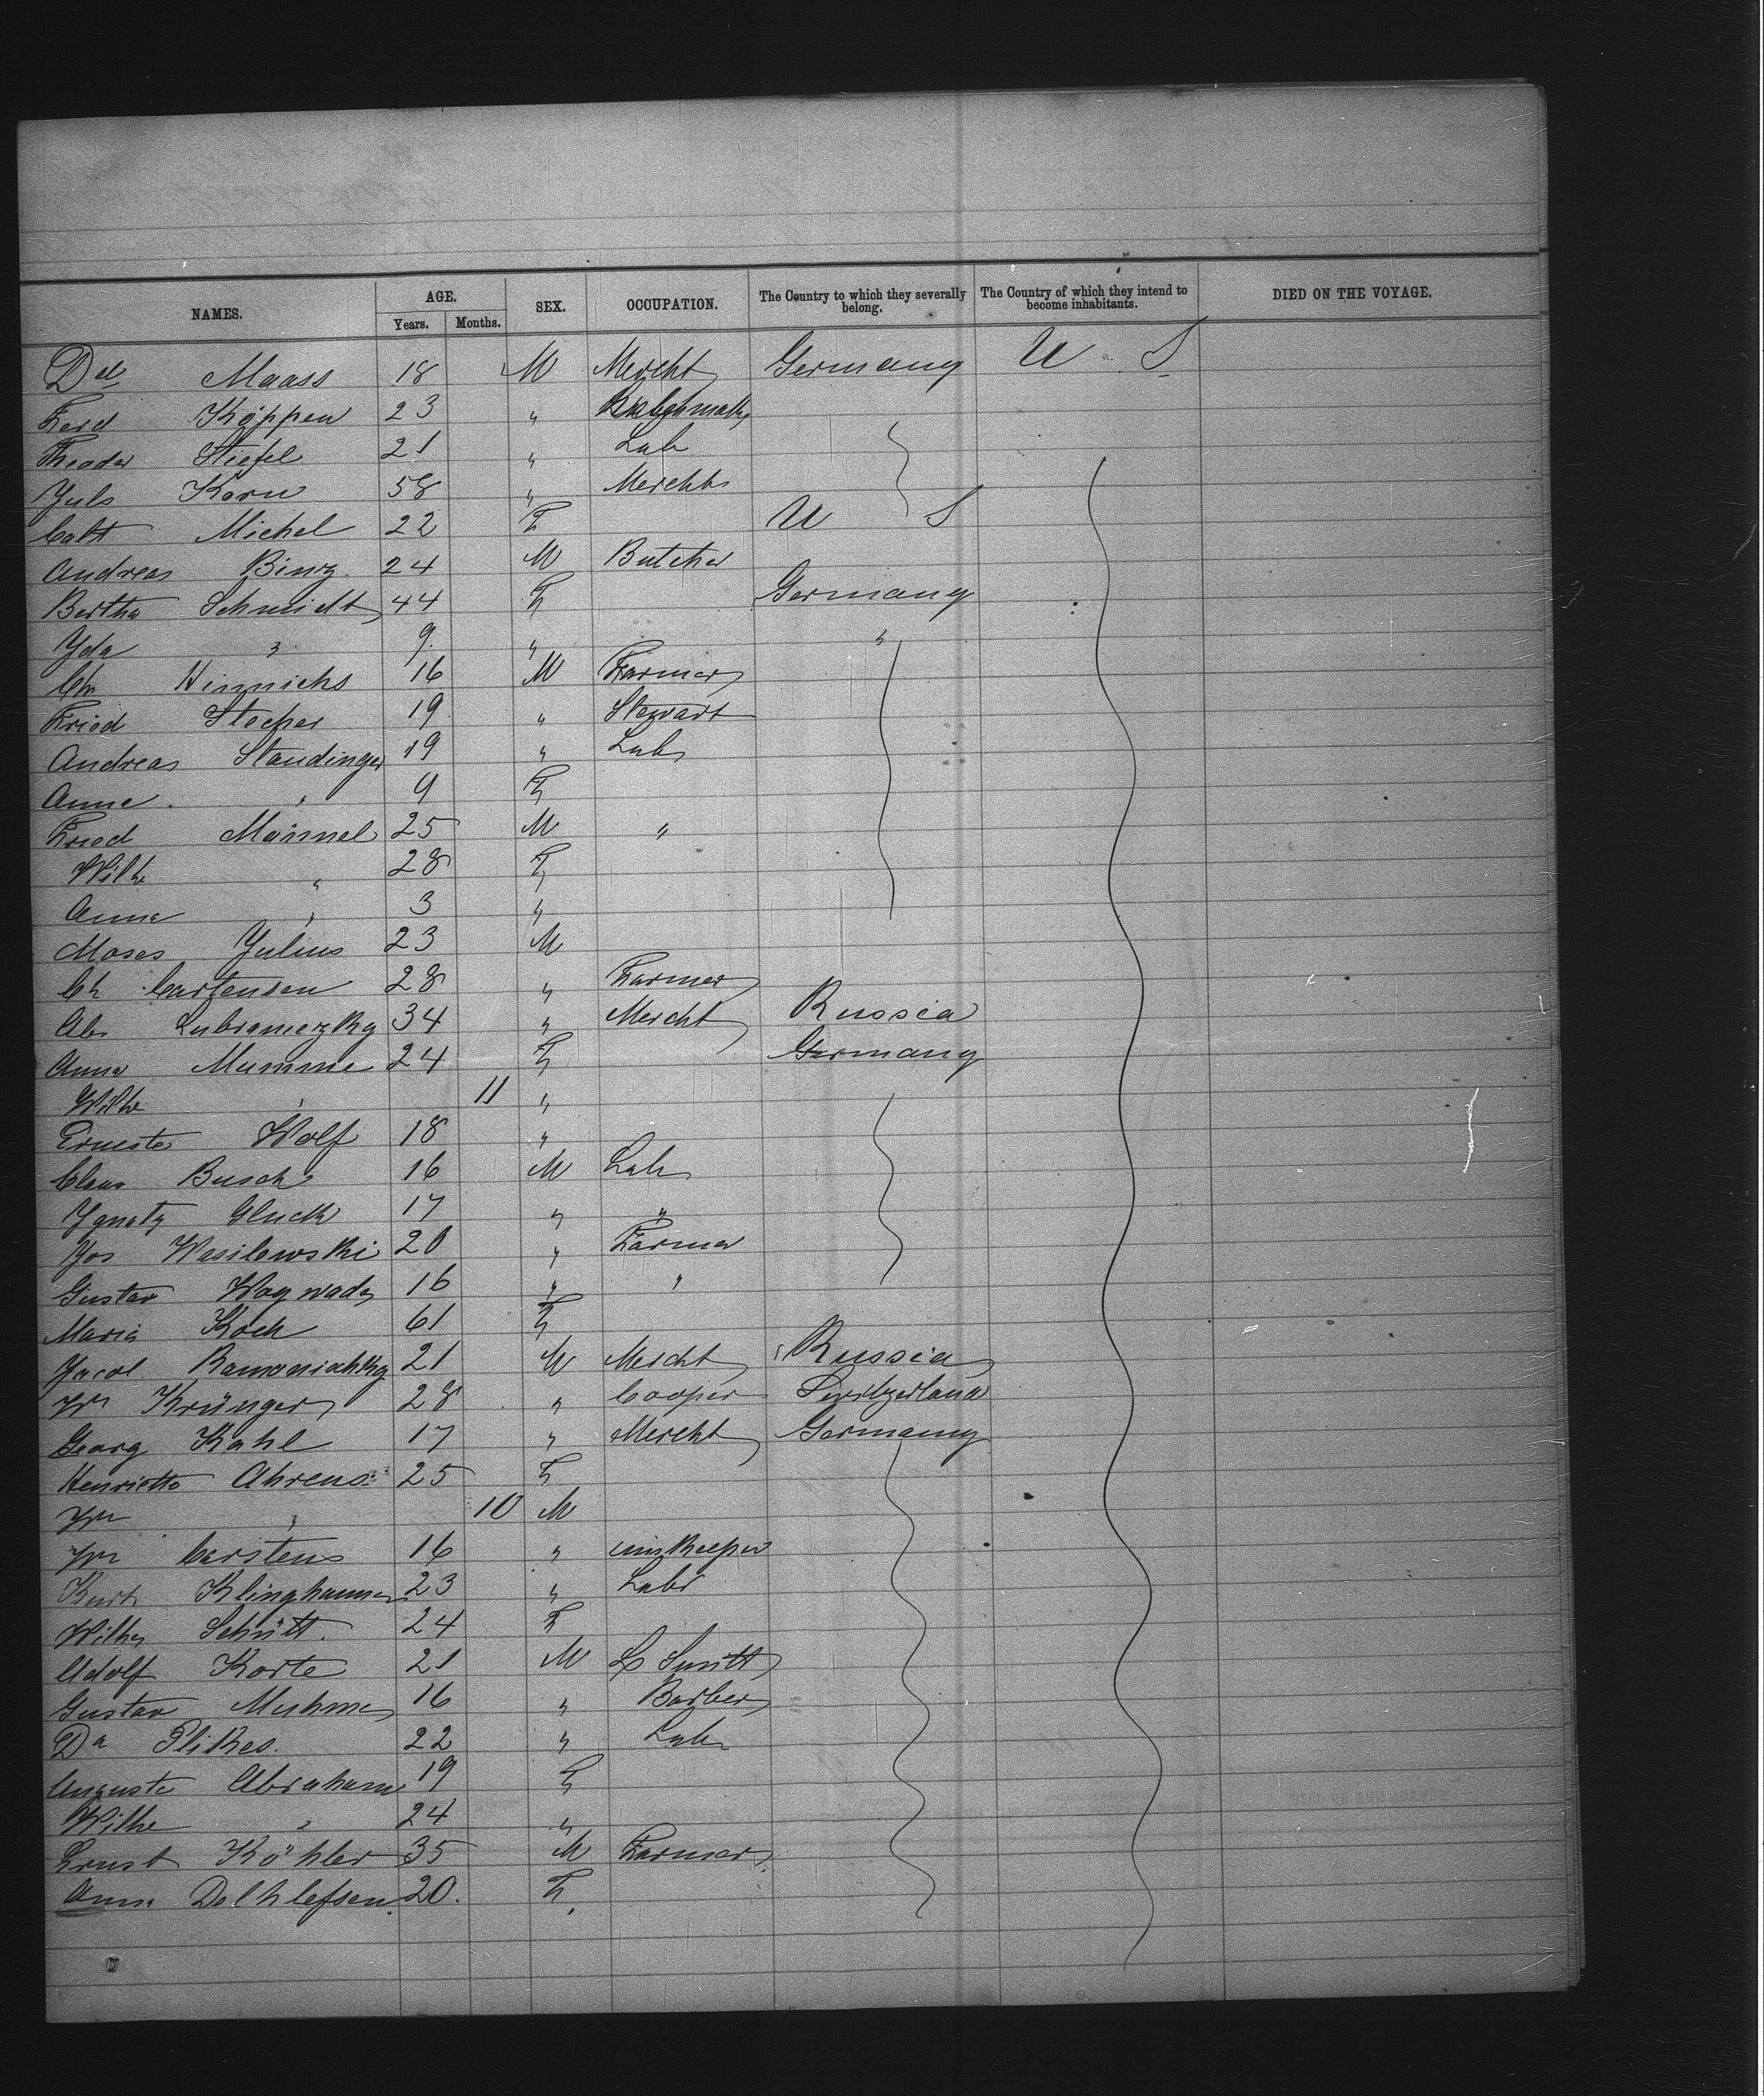 NAMES. AGE. SEX. OCCUPATION. The Country to which they severally belong. The Country of which they intend to become inhabitants. DIED ON THE VOYAGE.
Years. Months.
Dd Maass 18 M Mercht Germany U S
Ferd Köppen 23 "
Theodor Stiefel 21 " Lab
Juls Korn 58 " Merchts
Cath Michel 22 F U S
Andreas Binz 24 M Butcher
Bertha Schmidt 44 F Germany
Ida " 9 " "
Chr Hinrichs 16 M Farmer
Fried Stocher 19 " Stewart
Andreas Staudinger 19 " Lab
Anna " 9 F
Fried Männel 25 M "
Wilhe " 28 F
Anna " 3 "
Moses Julius 23 M
Ch Cartensen 28 " Farmer
Abr 34 " Mercht Russia
Anna Mumme 24 F Germany
Wilhe " 11 "
Erneste Wolf 18 "
Claus Busch 16 M Lab
Ignatz Gluck 17 " "
Jos Wasilewski 20 " Farmer
Gustav 16 " "
Maria Koch 61 F
Jacob 21 M Mercht Russia
Wm Krünger 28 " Cooper Switzerland
Georg Kahl 17 " Mercht Germany
Henriette Ahrens 25 F
Wm " 10 M
Wm Carstens 16 " innkeeper
Kurt Klinghammer 23 " Labr
Wilhe Schütt 24 F
Adolf Korte 21 M L Smith
Gustav Muhme 16 " Barber
Da Plikes 22 " Lab
Auguste Abraham 19 F
Wilhe " 24 "
Ernst Köhler 35 M Farmer
Anna Dethlefsen 20 F